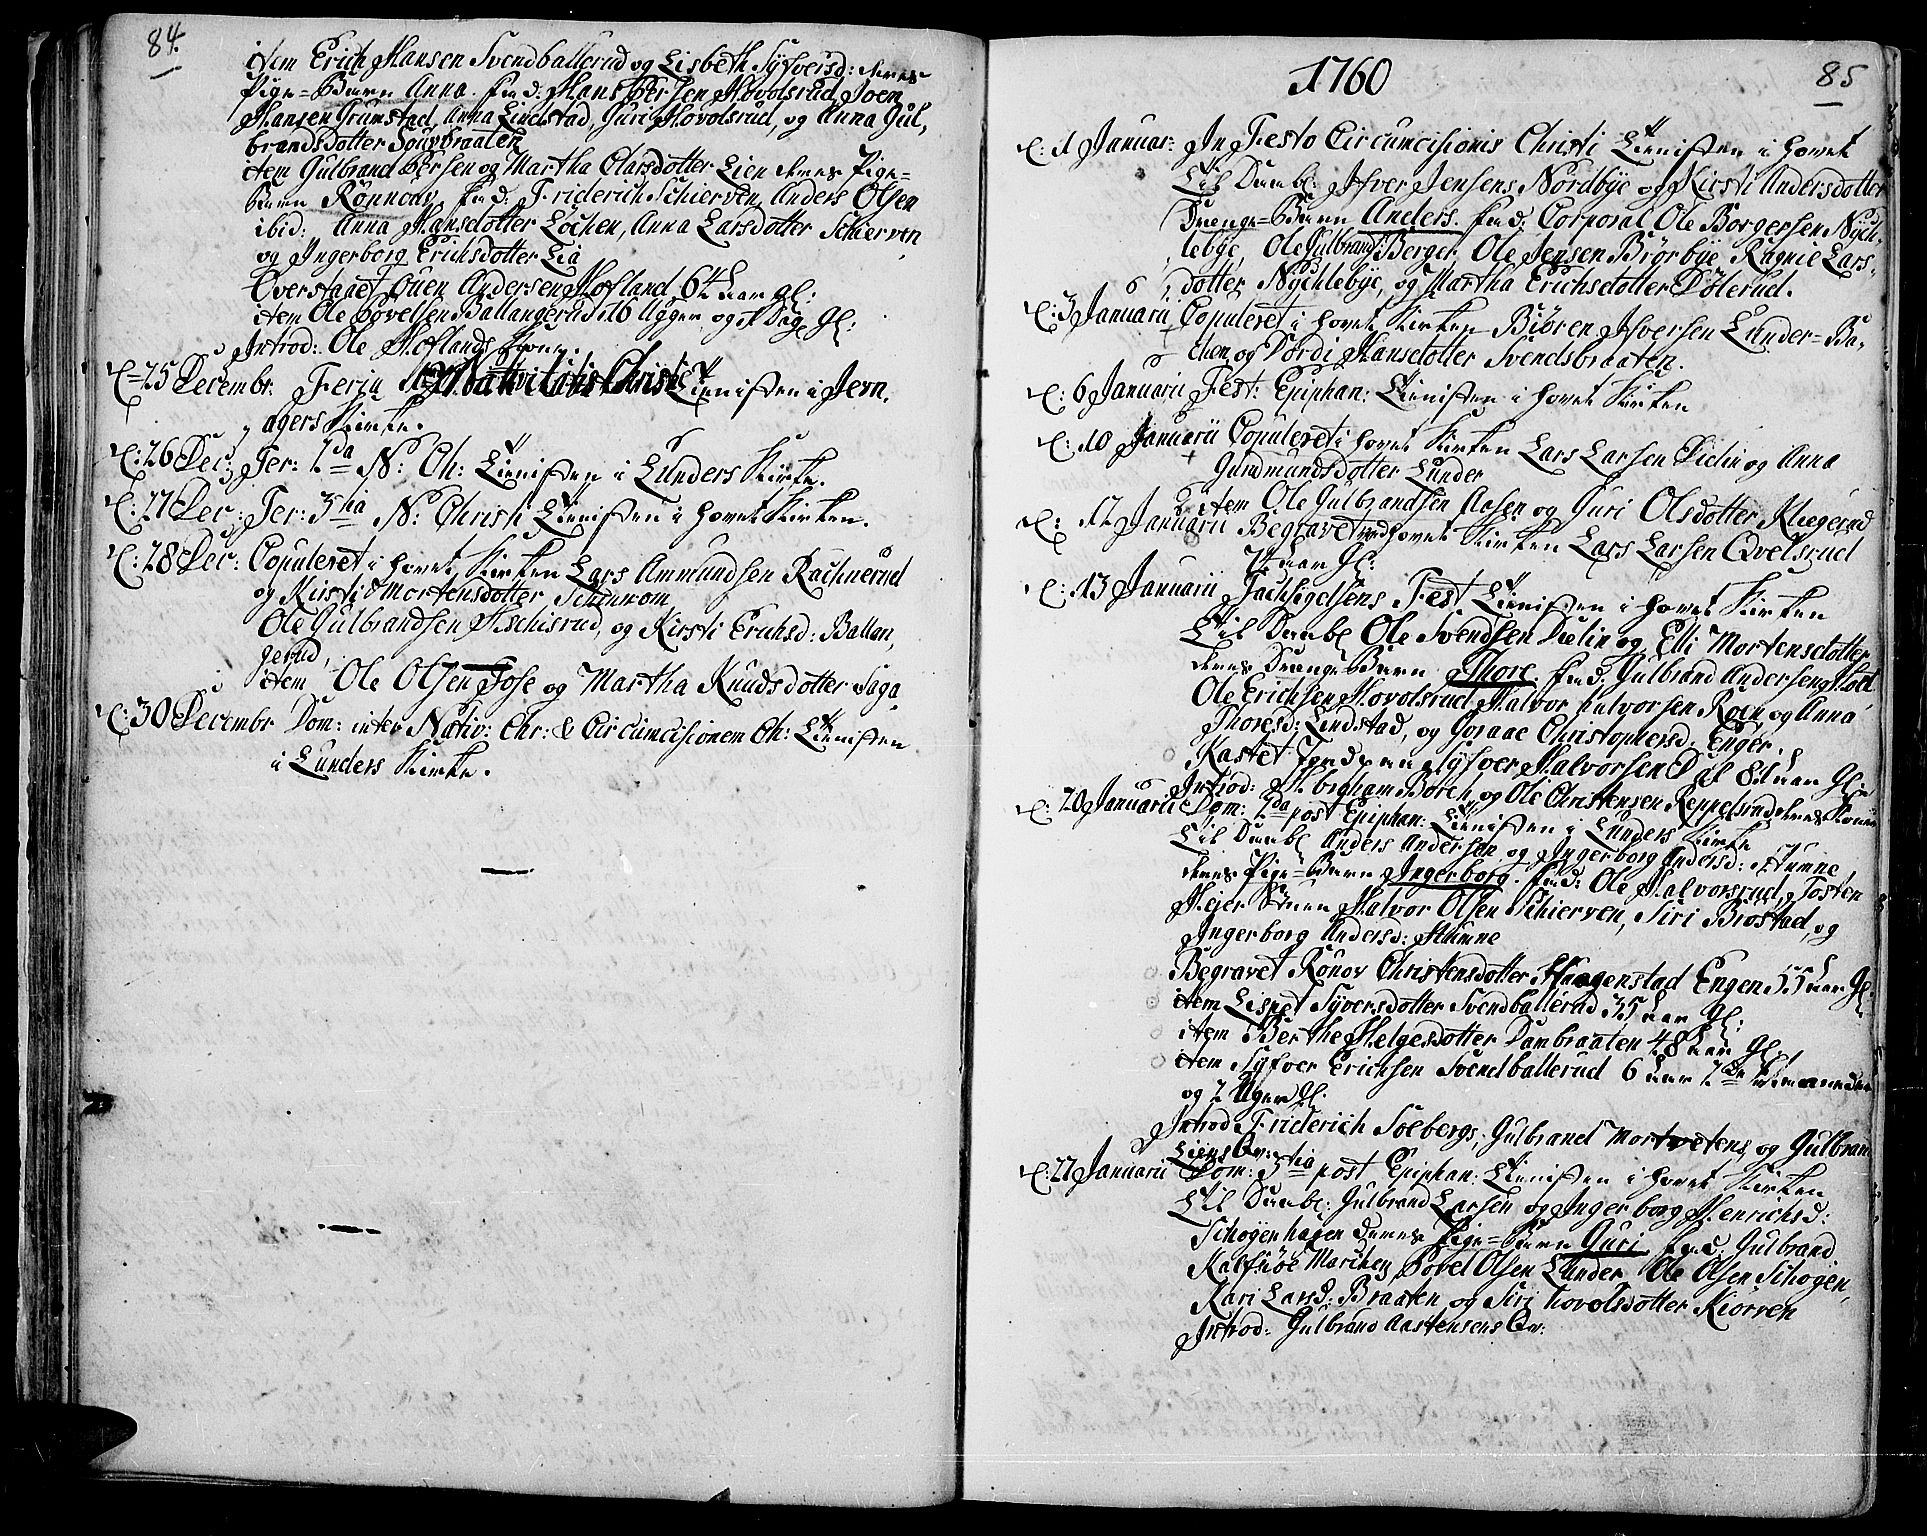 84.
item Erich Hansen Svendballerud og Lisbeth Syfversd: deres
Pige-Barn Anna. fad: Hans Persen Hovolsrud, Joen
Hansen Grumstad, Anna Lindstad, Guri Hovolsrud, og Anna Gul,
brandsdotter Souvbraaten
item Gulbrand Persen og Martha Olarsdotter Lien deres Pige-
Barn Rönnov. fad: Friderich Schierven, Anders Olsen
ibid: Anna Hansdotter Lochen, Anna Larsdotter Schierven
og Ingerborg Erichsdotter Lia
Overstaaet Ouen Andersen Hofland 64 aar gl:
item Ole Povelsen Ballangerud 16 Uger og 1 Dag Gl:
Introd: Ole Hoflands kone.
d: 25 Decembr. Feriu Nativitatis Christi Tienisten i Jevn,
agers Kirke.
d: 26 Dec: Fer: 2da N: Ch: Tienisten i Lunders Kirke.
d: 27 Dec: Fer: 3tia N: Christi Tienisten i hovet Kirken.
d: 28 Dec: Copuleret i hovet Kirken Lars Ammundsen Rachnerud
og Kirsti Mortensdotter Schinnom
Ole Gulbrandsen Aschisrud, og Kirsti Erichsd: Ballan,
gerud,
item Ole Olsen Fose og Martha Knudsdotter Saga
d: 30 Decembr Dom: inter Nativ: Chr: & Circumcisionem Ch: Tienisten
i Lunders Kirke.
1760
85
d: 1 Januar: In Festo Circumcisionis Christi Tienisten i hovet
Til Daab: Ifver Jensens Nordbye og Kirsti Andersdotter
Drenge-Barn Anders. fad: Corporal Ole Borgersen Nych,
lebye, Ole Gulbrands: Berger, Ole Jensen Brörbye Ragnie Lars,
dotter Nychlebye, og Martha Erichsdotter Dölerud.
d: 3 Januarii Copuleret i hovet Kirken Biören Ifversen Lunder-Ba,
chen og Dordi Hansdotter Svendsbraaten.
d: 6 Januarii Fest: Epiphan: Tienisten i hovet Kirken
d: 10 Januarii Copuleret i hovet Kirken Lars Larsen Dielin og Anna
Gudmundsdotter Lunder
item Ole Gulbrandsen Aasen og Guri Olsdotter Klægerud
d: 12 Januarii Begravet ved hovet Kirken Lars Larsen Qvelsrud
72 aar Gl:
d: 13 Januarii Tachsigelsens Fest Tienisten i hovet Kirken
Til Daab Ole Svendsen Dælin og Elli Mortensdotter
deres Drenge Barn Thore fad: Gulbrand Andersen Hoel
Ole Erichsen Hovolsrud Halvor halvorsen Roen og Anna
Thoresd: Lindstad, og Goraae Christophersd: Enger.
Kastet Jord paa Syfver Halvorsen Dal 81 aar Gl.
Introd: Abraham Borch og Ole Christensen Reppelsrud deres Koner
d: 20 Januarii Dom: 2da post Epiphan: Tienisten i Lunders Kirke
Til Daab Anders Andersen og Ingerborg Andersd: Humne
deres Pige-Barn Ingerborg. fad: Ole Halvorsrud, Tosten
Hejer Stuen Halvor Olsen Schierven, Siri Brostad, og
Ingerborg Andersd: Humne
Begravet Rönov Christensdotter Haagenstad Engen 55 aar Gl.
item Lisbet Syversdotter Svendballerud 35 aar gl:
item Berthe Helgesdotter Dambraaten 48 aar Gl
item Syfver Erichsen Svendballerud 6 aar maaneder
og 2 Uger Gl.
Introd Friderich Solbergs, Gulbrand Mortvetens, og Gulbran
Liens Qv:
d: 27 Januarii Dom: 3tia post Epiphan: Tienisten i hovet Kirken
Til Daab: Gulbrand Larsen og Ingerborg Henrichsd:
Schogenhagen deres Pige-Barn Guri fad: Gulbrand
Kalfsiöe Marchen, Povel Olsen Lunder, Ole Olsen Schogen,
Kari Larsd: Braaten og Siri hovolsdotter Kiörven
Introd: Gulbrand Aastensens Qv: